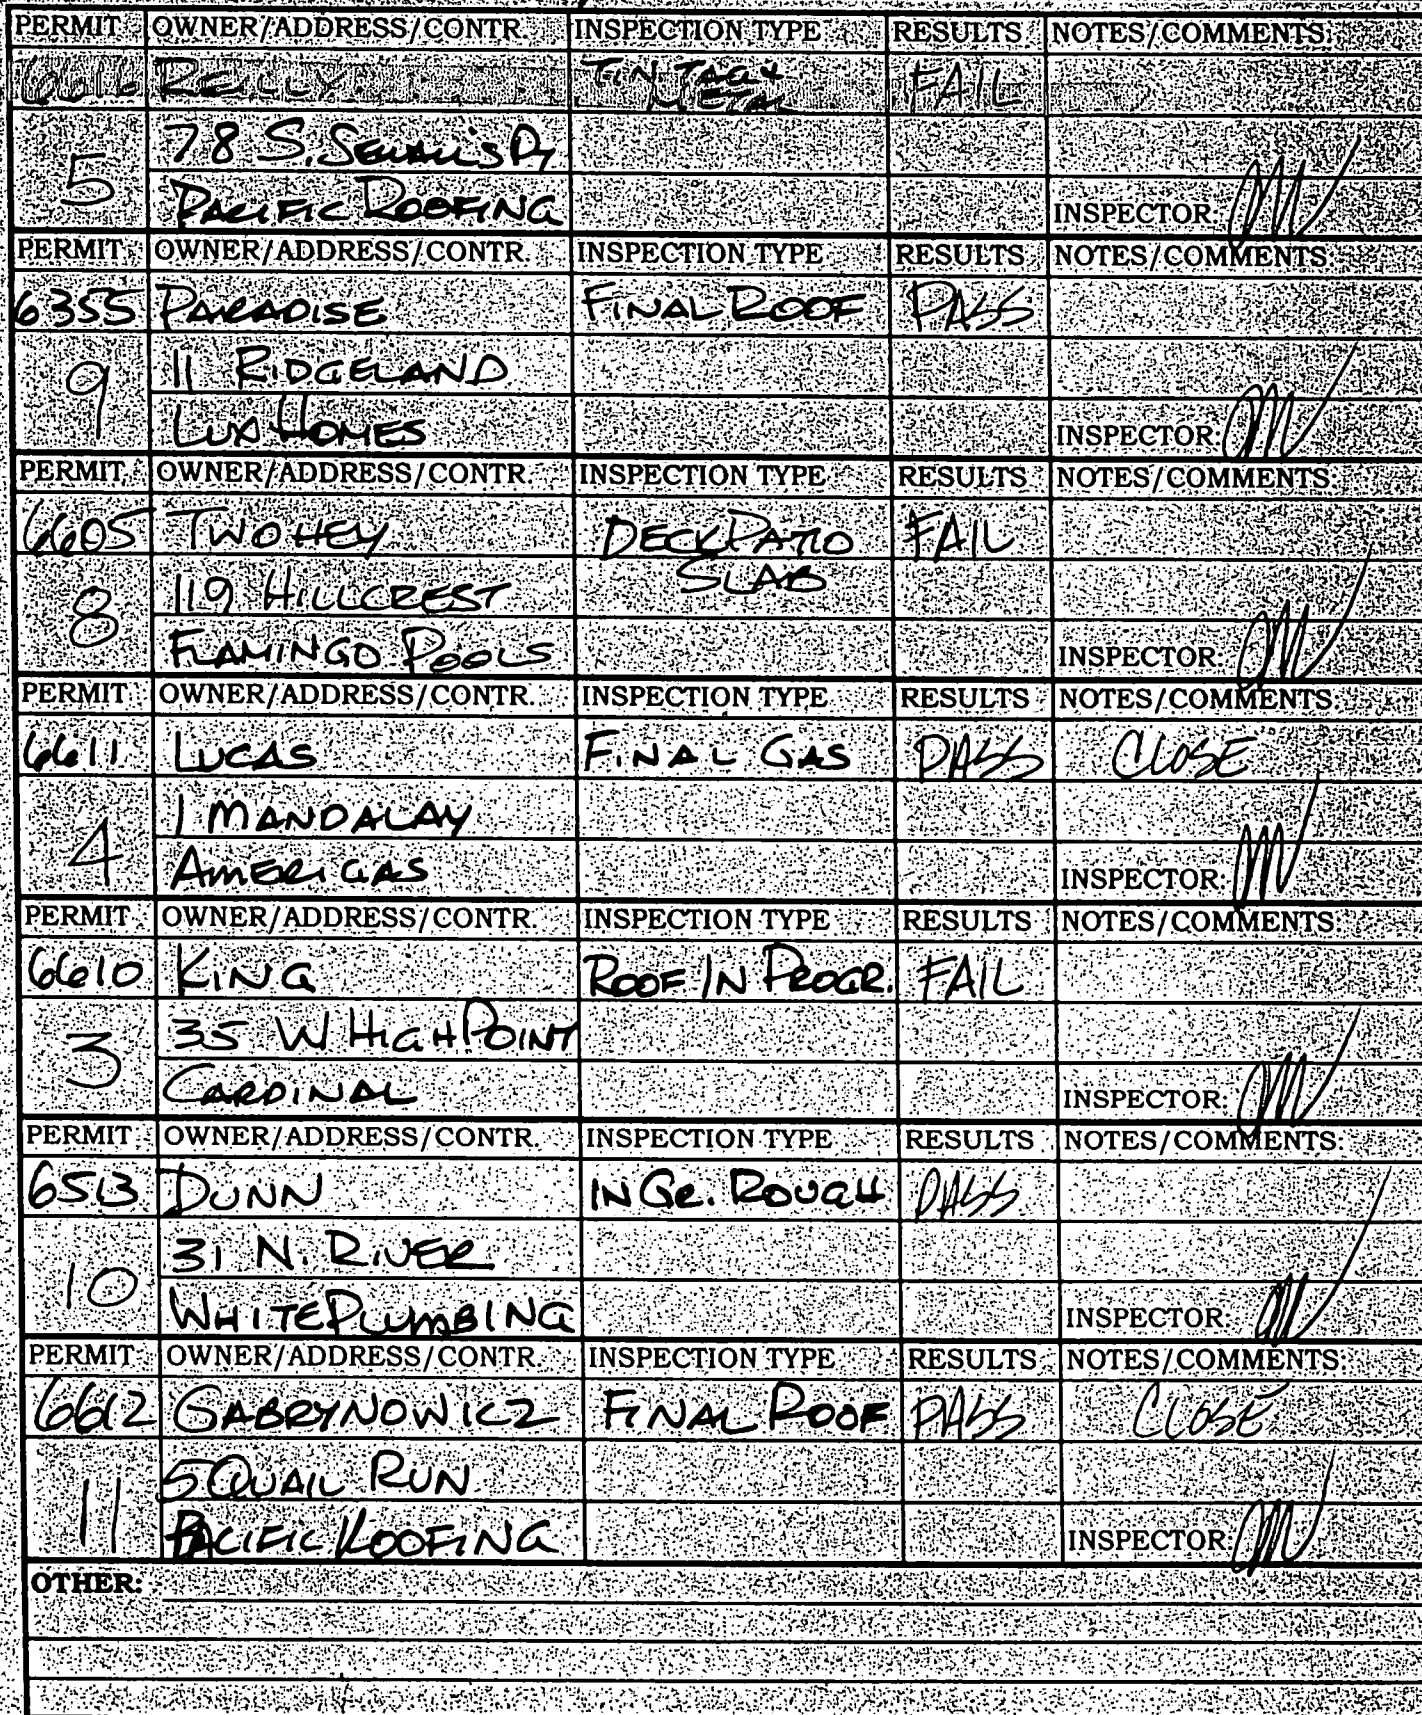 PERMIT OWNER/ADDRESS/CONTR. INSPECTION TYPE RESULTS NOTES/COMMENTS:
6616 REILLY TIN TAG & FAIL
METAL
5 78 S. SEWALL'S PT
PACIFIC ROOFING INSPECTOR:
PERMIT OWNER/ADDRESS/CONTR. INSPECTION TYPE RESULTS NOTES/COMMENTS:
6355 PARADISE FINAL ROOF PASS
9 11 RIDGELAND
LUX HOMES INSPECTOR:
PERMIT OWNER/ADDRESS/CONTR. INSPECTION TYPE RESULTS NOTES/COMMENTS:
6605 TWOHEY DECK PATIO FAIL
SLAB
8 119 HILLCREST
FLAMINGO POOLS INSPECTOR:
PERMIT OWNER/ADDRESS/CONTR. INSPECTION TYPE RESULTS NOTES/COMMENTS:
6611 LUCAS FINAL GAS PASS CLOSE
4 1 MANDALAY
AMERIGAS INSPECTOR:
PERMIT OWNER/ADDRESS/CONTR. INSPECTION TYPE RESULTS NOTES/COMMENTS
6610 KING ROOF IN PROGR. FAIL
3 35 W HIGH POINT
CARDINAL INSPECTOR:
PERMIT OWNER/ADDRESS/CONTR. INSPECTION TYPE RESULTS NOTES/COMMENTS:
6513 DUNN IN GR. ROUGH PASS
10 31 N. RIVER
WHITE PLUMBING INSPECTOR:
PERMIT OWNER/ADDRESS/CONTR. INSPECTION TYPE RESULTS NOTES/COMMENTS:
6612 GABRYNOWICZ FINAL ROOF PASS CLOSE
11 5 QUAIL RUN
PACIFIC ROOFING INSPECTOR:
OTHER: